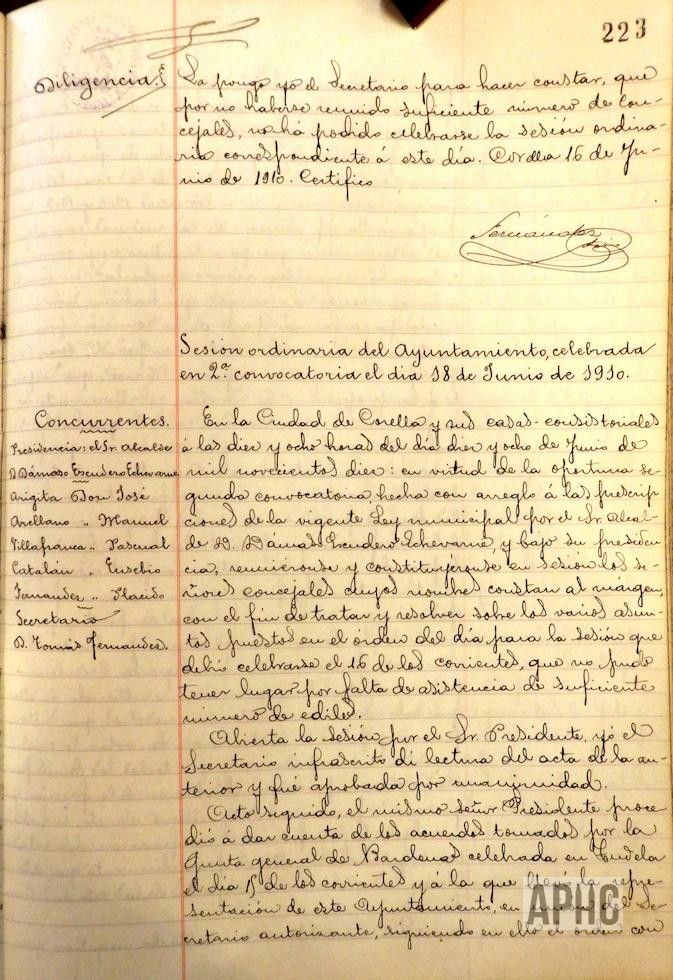 223
Diligencia.
La pongo yo el Secretario para hacer constar, que
por no haberse reunido suficiente número de con-
cejales, no há podido celebrarse la sesión ordina-
ria correspondiente á este día. Corella 16 de Ju-
nio de 1910. Certifico
Fernández
Sesión ordinaria del Ayuntamiento, celebrada
en 2ª convocatoria el día 18 de Junio de 1910.
Concurrentes.
Presidencia: el Sr. Alcalde
D. Dámaso Escudero Echevarne
Arigita Don José
Arellano " Manuel
Villafranca " Pascual
Catalán " Eusebio
Fernandez " Plácido
Secretario
D. Tomás Fernandez.
En la Ciudad de Corella y sus casas-consistoriales
á las diez y ocho horas del día diez y ocho de Junio de
mil novecientos diez: en virtud de la oportuna se-
gunda convocatoria, hecha con arreglo á las prescrip-
ciones de la vigente Ley municipal por el Sr. Alcal-
de D. Dámaso Escudero Echevarne, y bajo su presiden-
cia, reuniéronse y constituyéronse en sesión los se-
ñores concejales cuyos nombres constan al márgen,
con el fin de tratar y resolver sobre los varios asun-
tos puestos en el órden del día para la sesión que
debió celebrarse el 16 de los corrientes, que no pudo
tener lugar por falta de asistencia de suficiente
número de ediles.
Abierta la sesión por el Sr. Presidente, yó el
Secretario infrascrito dí lectura del acta de la an-
terior y fué aprobada por unanimidad.
Acto seguido, el mismo señor Presidente proce-
dió á dar cuenta de los acuerdos tomados por la
Junta general de Bardenas celebrada en Tudela
el día 15 de los corrientes y á la que llevó la repre-
sentación de este Ayuntamiento, en unión del Se-
cretario autorizante, siguiendo en ello el órden con
APHC